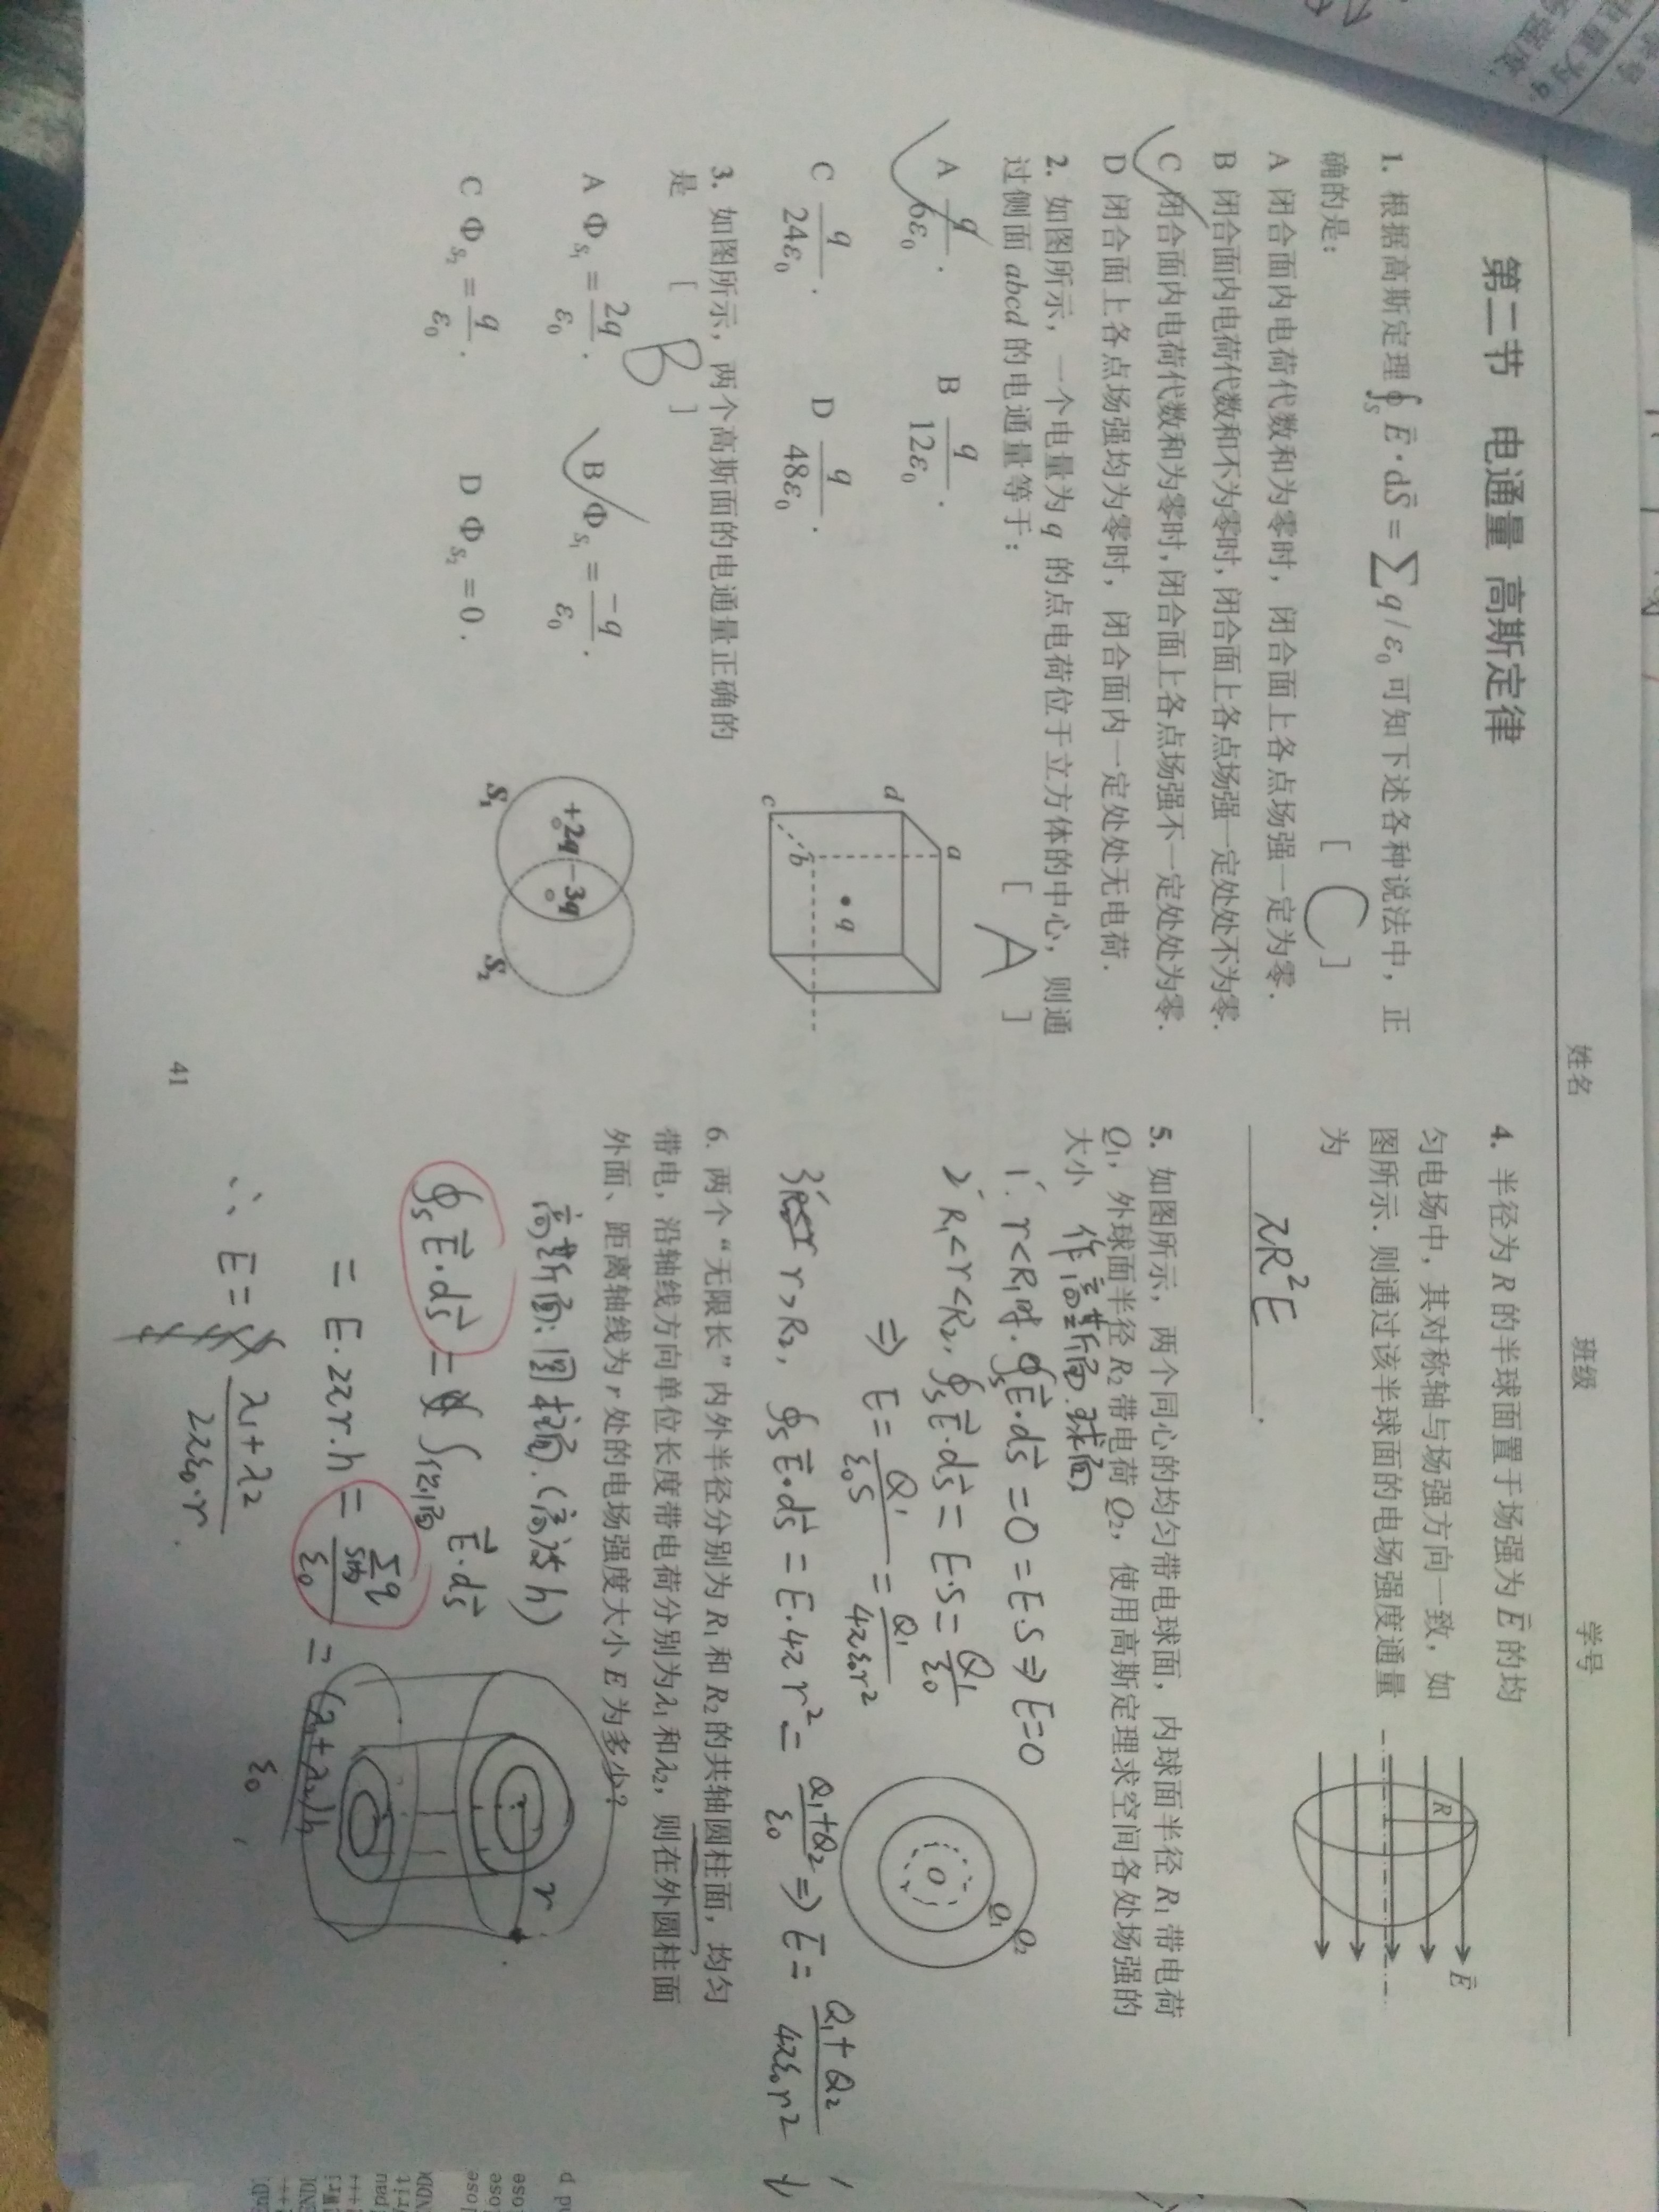 姓名 班级 学号
第二节 电通量 高斯定律
1. 根据高斯定理 ∮_S E⃗·dS⃗ = ∑q/ε₀ 可知下述各种说法中，正
确的是： [ C ]
A 闭合面内电荷代数和为零时，闭合面上各点场强一定为零.
B 闭合面内电荷代数和不为零时，闭合面上各点场强一定处处不为零.
C 闭合面内电荷代数和为零时，闭合面上各点场强不一定处处为零.
D 闭合面上各点场强均为零时，闭合面内一定处处无电荷.
2. 如图所示，一个电量为 q 的点电荷位于立方体的中心，则通
过侧面 abcd 的电通量等于： [ A ]
A q/6ε₀. B q/12ε₀.
C q/24ε₀. D q/48ε₀.
a
d
b
c
q
3. 如图所示，两个高斯面的电通量正确的
是 [ B ]
A Φ_S₁ = 2q/ε₀. B Φ_S₁ = -q/ε₀.
C Φ_S₂ = q/ε₀. D Φ_S₂ = 0.
+2q -3q
S₁ S₂
41
4. 半径为 R 的半球面置于场强为 E⃗ 的均
匀电场中，其对称轴与场强方向一致，如
图所示. 则通过该半球面的电场强度通量
为
πR²E.
R
E⃗
5. 如图所示，两个同心的均匀带电球面，内球面半径 R₁ 带电荷
Q₁，外球面半径 R₂ 带电荷 Q₂，使用高斯定理求空间各处场强的
大小 作高斯面.球面
1°. r<R₁时. ∮_S E⃗·dS⃗ = 0 = E·S ⇒ E=0
2° R₁<r<R₂, ∮_S E⃗·dS⃗ = E·S = Q₁/ε₀
⇒ E = Q₁/ε₀S = Q₁/4πε₀r²
3° r>R₂, ∮_S E⃗·dS⃗ = E·4πr² = Q₁+Q₂/ε₀ ⇒ E = Q₁+Q₂/4πε₀r²
O
Q₁
Q₂
6. 两个“无限长”内外半径分别为 R₁ 和 R₂ 的共轴圆柱面，均匀
带电，沿轴线方向单位长度带电荷分别为 λ₁ 和 λ₂，则在外圆柱面
外面、距离轴线为 r 处的电场强度大小 E 为多少?
高斯面: 圆柱面. (高为h)
∮_S E⃗·dS⃗ = ∫_侧面 E⃗·dS⃗
= E·2πr·h = ∑_S内 q/ε₀ = (λ₁+λ₂)h/ε₀
∴ E = λ₁+λ₂/2πε₀·r.
r